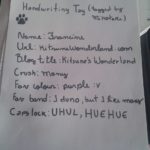 Handwriting Tag (tagged by
Name: Francine
Url: KitsuneWonderland.com
Blog title: Kitsune's Wonderland
Crush: many
Fav colour: purple :v
Fav band: I duno, but I like many
Capslock: UHUL, HUEHUE